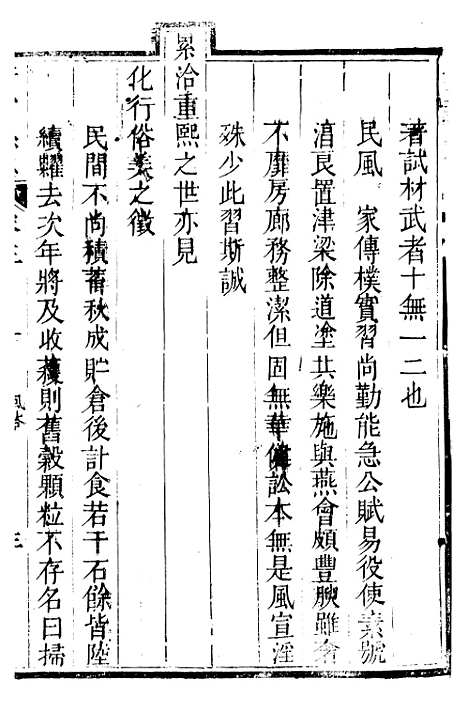 著試材武者十無一二也
民風　家傳樸實習尚勤能急公賦易役使素號
淯良置津梁除道塗共樂施與燕會頗豐腴雖奢
不靡房廊務整潔但固無華僞訟本無是風宣淫
殊少此習斯誠
累洽重熙之世亦見
化行俗美之徵
民間不尚積蓄秋成貯倉後計食若干石餘皆陸
續糶去次年將及收穫則舊穀顆粒不存名曰掃